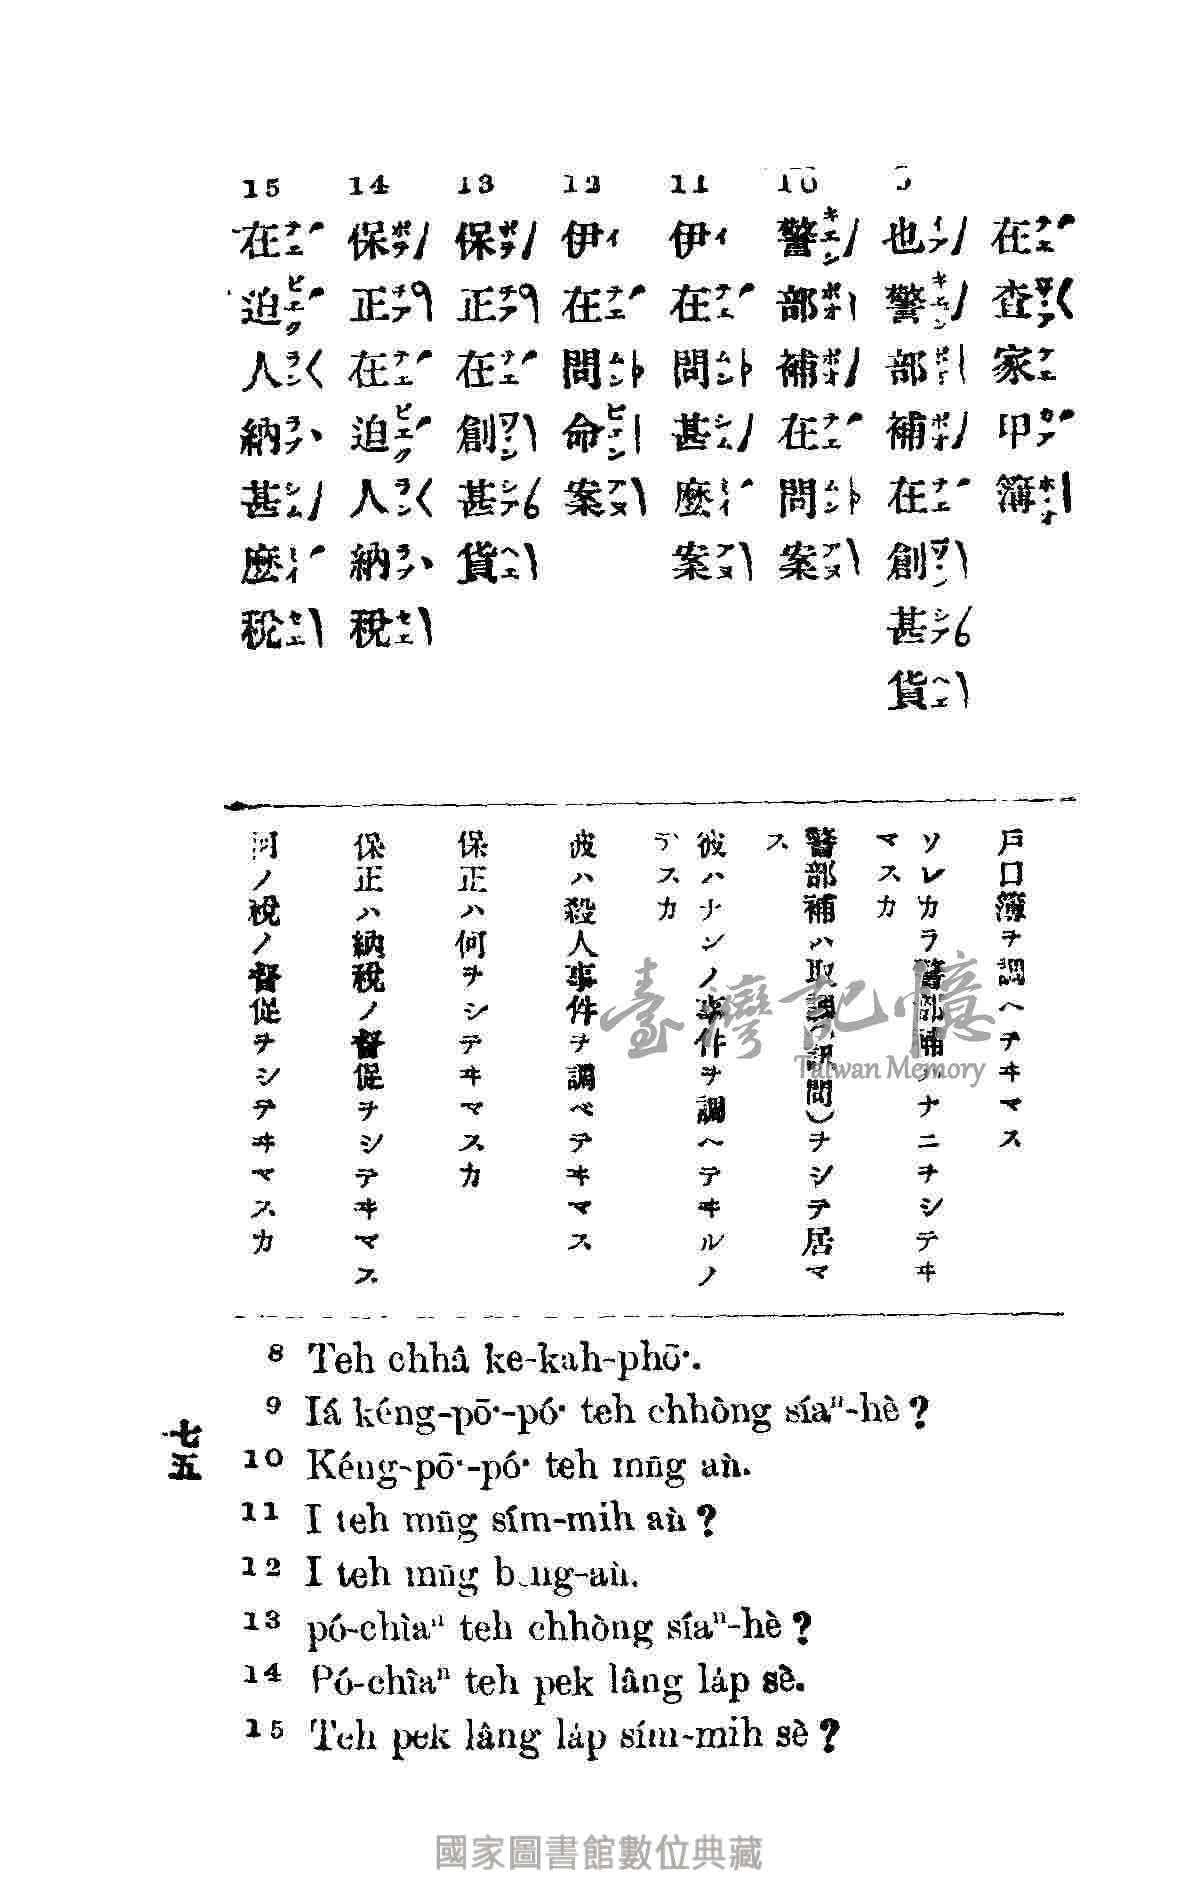 在查家甲簿
也警部補在創甚貨
10 警部補在問案
11 伊在問甚麼案
12 伊在問命案
13 保正在創甚貨
14 保正在迫人納稅
15 在迫人納甚麼稅
戶口簿ヲ調ヘテヰマス
ソレカラ警部補ハナニヲシテヰ
マスカ
警部補ハ取調(訊問)ヲシテ居マ
ス
彼ハナンノ事件ヲ調ヘテヰルノ
デスカ
彼ハ殺人事件ヲ調ベテヰマス
保正ハ何ヲシテヰマスカ
保正ハ納稅ノ督促ヲシテヰマス
何ノ稅ノ督促ヲシテヰマスカ
8 Teh chhâ ke-kah-phō͘.
9 Iá kéng-pō͘-pó͘ teh chhòng síaⁿ-hè?
10 Kéng-pō͘-pó͘ teh mn̄g aǹ.
11 I teh mn̄g sím-mih aǹ?
12 I teh mn̄g aǹ.
13 pó-chìaⁿ teh chhòng síaⁿ-hè?
14 Pó-chîaⁿ teh pek lâng la̍p sè.
15 Teh pek lâng la̍p sím-mih sè?
七五
臺灣記憶
Taiwan Memory
國家圖書館數位典藏